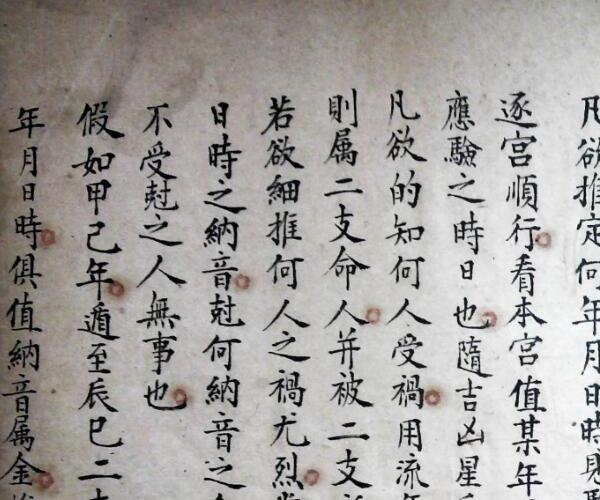 凡欲推定何年月日時
逐宮順行看本宮值某年
應驗之時日也隨吉凶星
凡欲的知何人受禍用流
則属二支命人并被二支
若欲細推何人之禍尤烈
日時之納音尅何納音之
不受尅之人無事也
假如甲己年遁至辰巳二
年月日時俱值納音属金